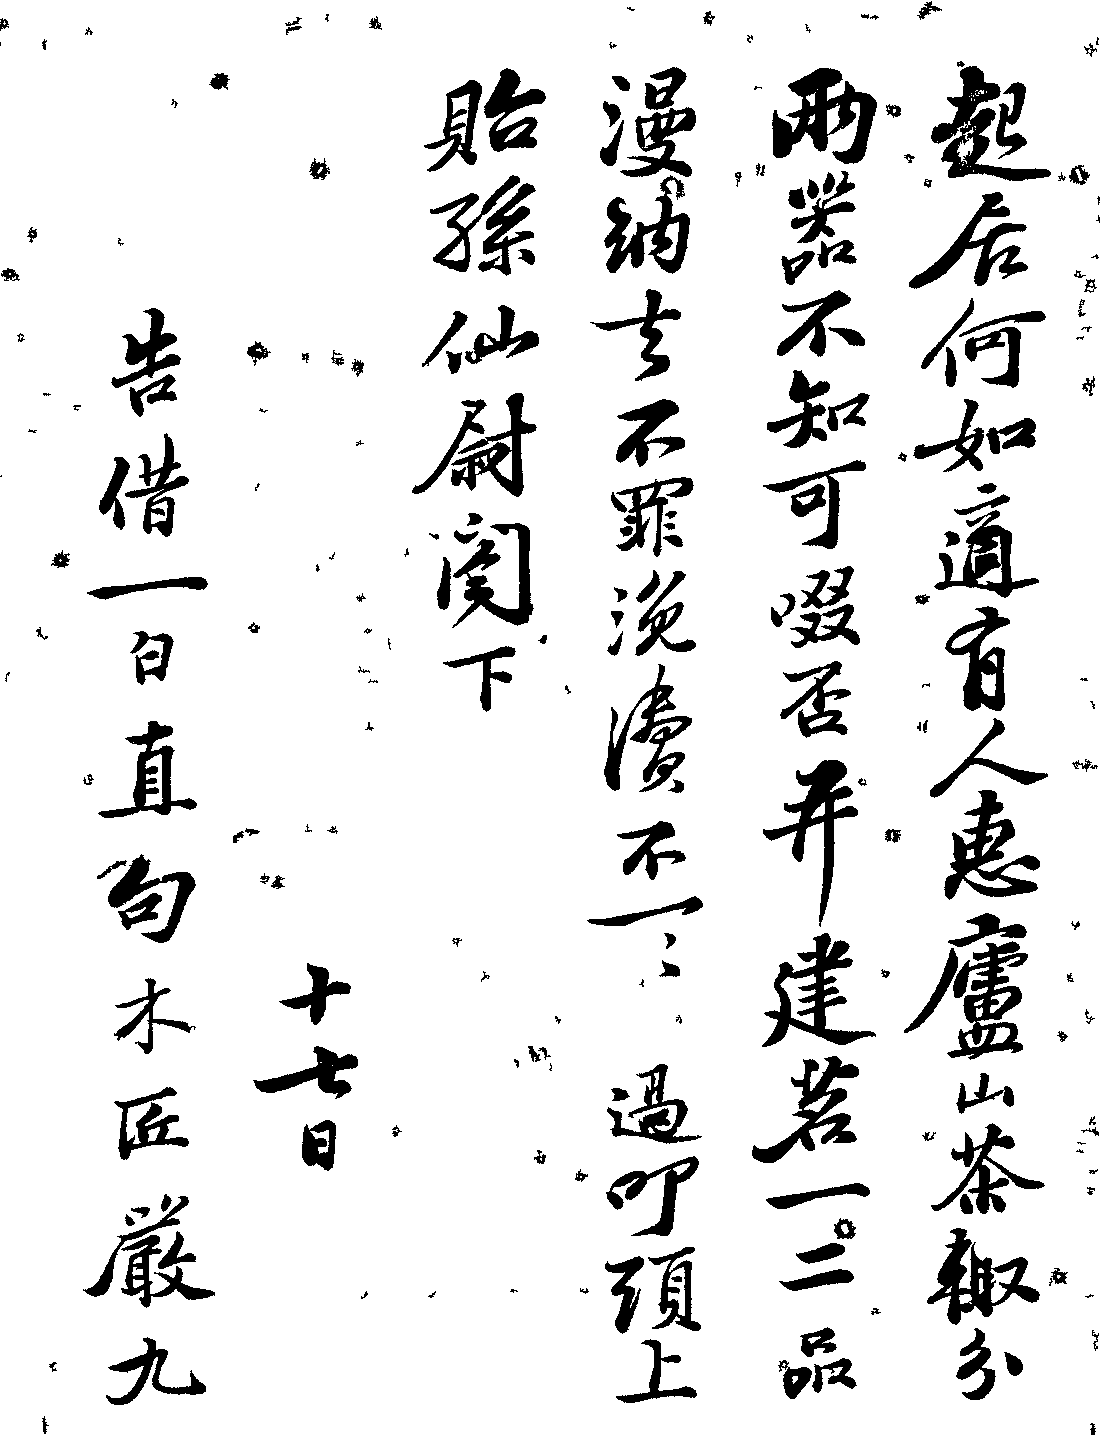 起居何如適有人惠廬山茶輙分
兩器不知可啜否并建茗一二品
漫納去不罪浼瀆不一〻 過叩頭上
貽孫仙尉閣下
十七日
告借一白直句木匠嚴九